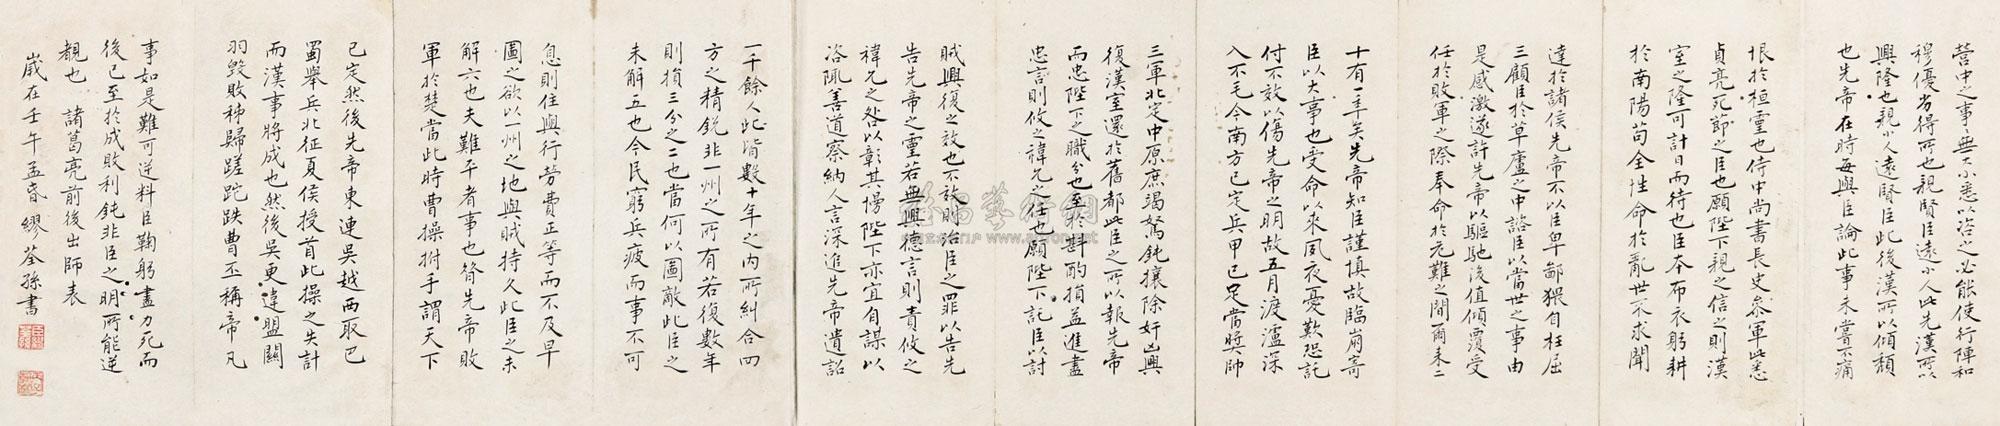 營中之事無不悉以咨之必能使行陣和
穆優劣得所也親賢臣遠小人此先漢所以
興隆也親小人遠賢臣此後漢所以傾頹
也先帝在時每與臣論此事未嘗不痛
恨於桓靈也侍中尚書長史參軍此悉
貞亮死節之臣也願陛下親之信之則漢
室之隆可計日而待也臣本布衣躬耕
於南陽苟全性命於亂世不求聞
達於諸侯先帝不以臣卑鄙猥自枉屈
三顧臣於草廬之中諮臣以當世之事由
是感激遂許先帝以驅馳後值傾覆受
任於敗軍之際奉命於危難之間爾來二
十有一年矣先帝知臣謹慎故臨崩寄
臣以大事也受命以來夙夜憂歎恐託
付不效以傷先帝之明故五月渡瀘深
入不毛今南方已定兵甲已足當獎帥
三軍北定中原庶竭駑鈍攘除奸凶興
復漢室還於舊都此臣之所以報先帝
而忠陛下之職分也至於斟酌損益進盡
忠言則攸之禕允之任也願陛下託臣以討
賊興復之效也不效則治臣之罪以告先
告先帝之靈若無興德言則責攸之
禕允之咎以彰其慢陛下亦宜自謀以
咨諏善道察納人言深進先帝遺詔
一千餘人此皆數十年之內所糾合四
方之精銳非一州之所有若復數年
則損三分之二也當何以圖敵此臣之
未解五也今民窮兵疲而事不可
息則住與行勞費正等而不及早
圖之欲以一州之地與賊持久此臣之未
解六也夫難平者事也昔先帝敗
軍於楚當此時曹操拊手謂天下
已定然後先帝東連吳越西取巴
蜀舉兵北征夏侯授首此操之失計
而漢事將成也然後吳更違盟關
羽毀敗秭歸蹉跎跌曹丕稱帝凡
事如是難可逆料臣鞠躬盡力死而
後已至於成敗利鈍非臣之明所能逆
覩也 諸葛亮前後出師表
歲在壬午孟春繆荃孫書